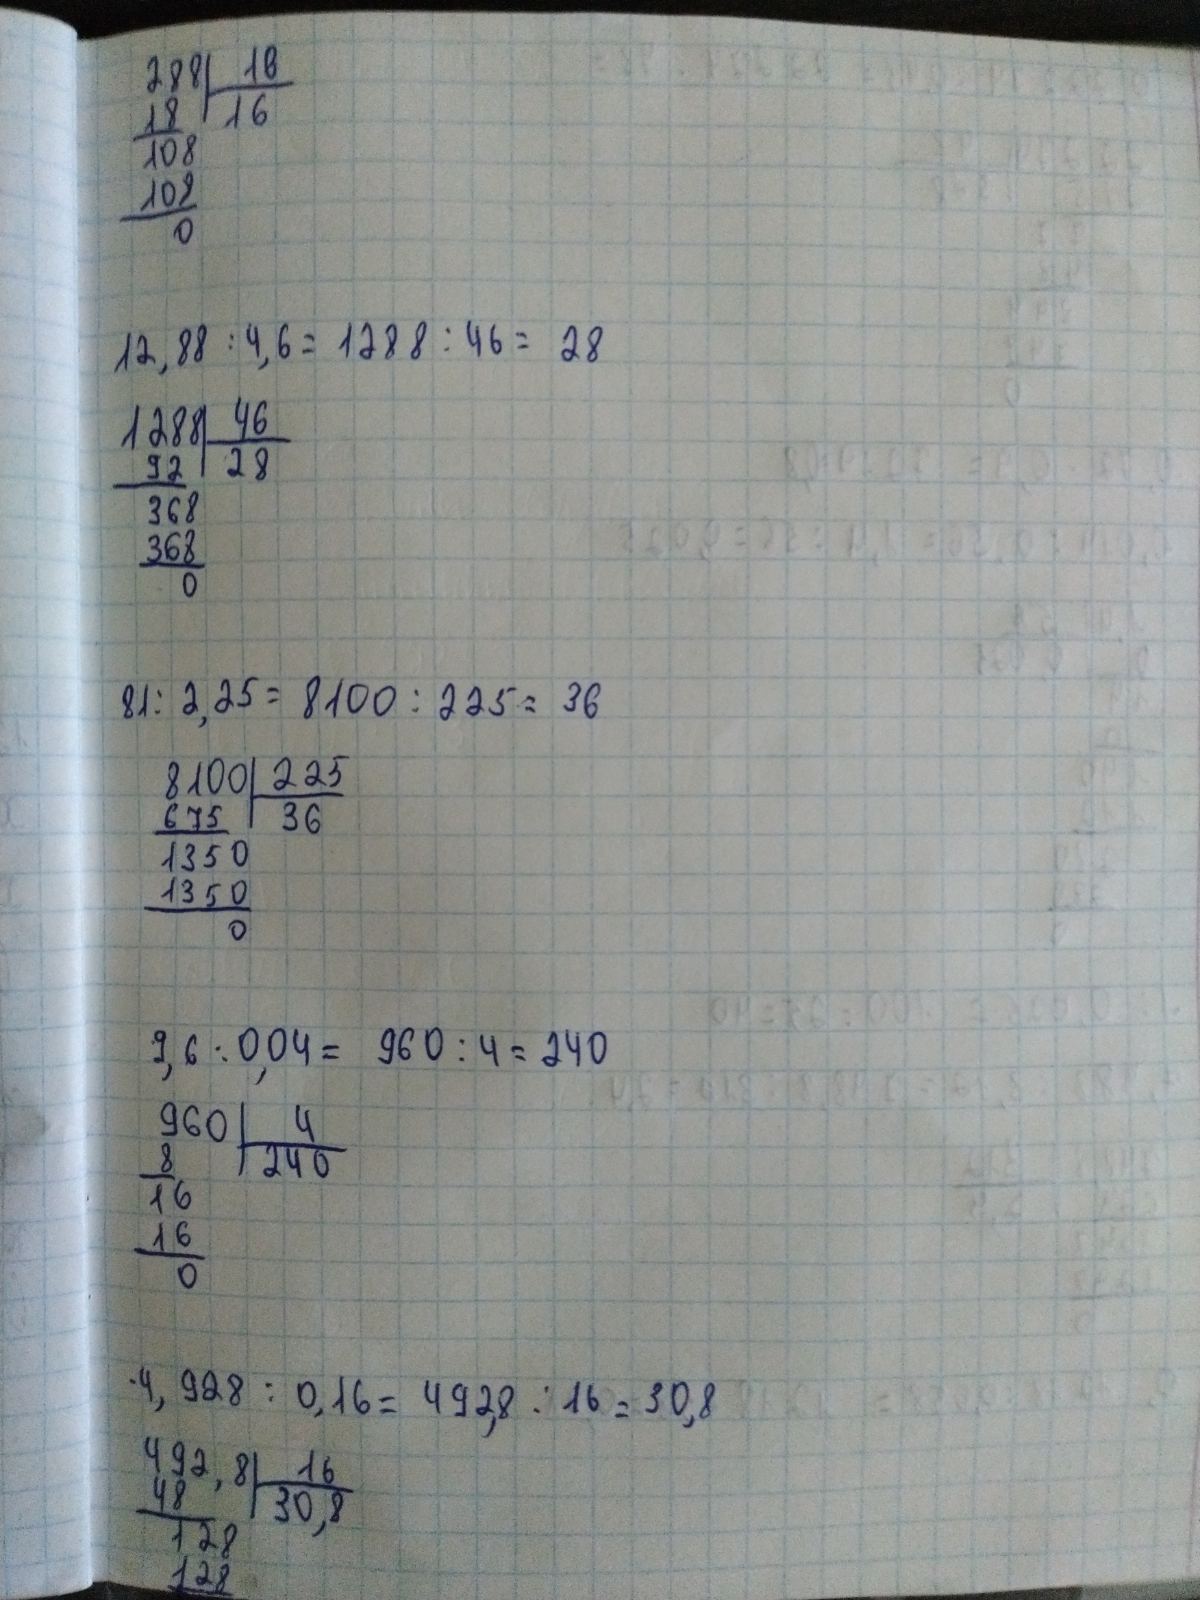 288 18
18 16
108
108
0
12,88 : 4,6 = 1288 : 46 = 28
1288 46
92 28
368
368
0
81 : 2,25 = 8100 : 225 = 36
8100 225
675 36
1350
1350
0
9,6 : 0,04 = 960 : 4 = 240
960 4
8 240
16
16
0
4,928 : 0,16 = 492,8 : 16 = 30,8
492,8 16
48 30,8
128
128